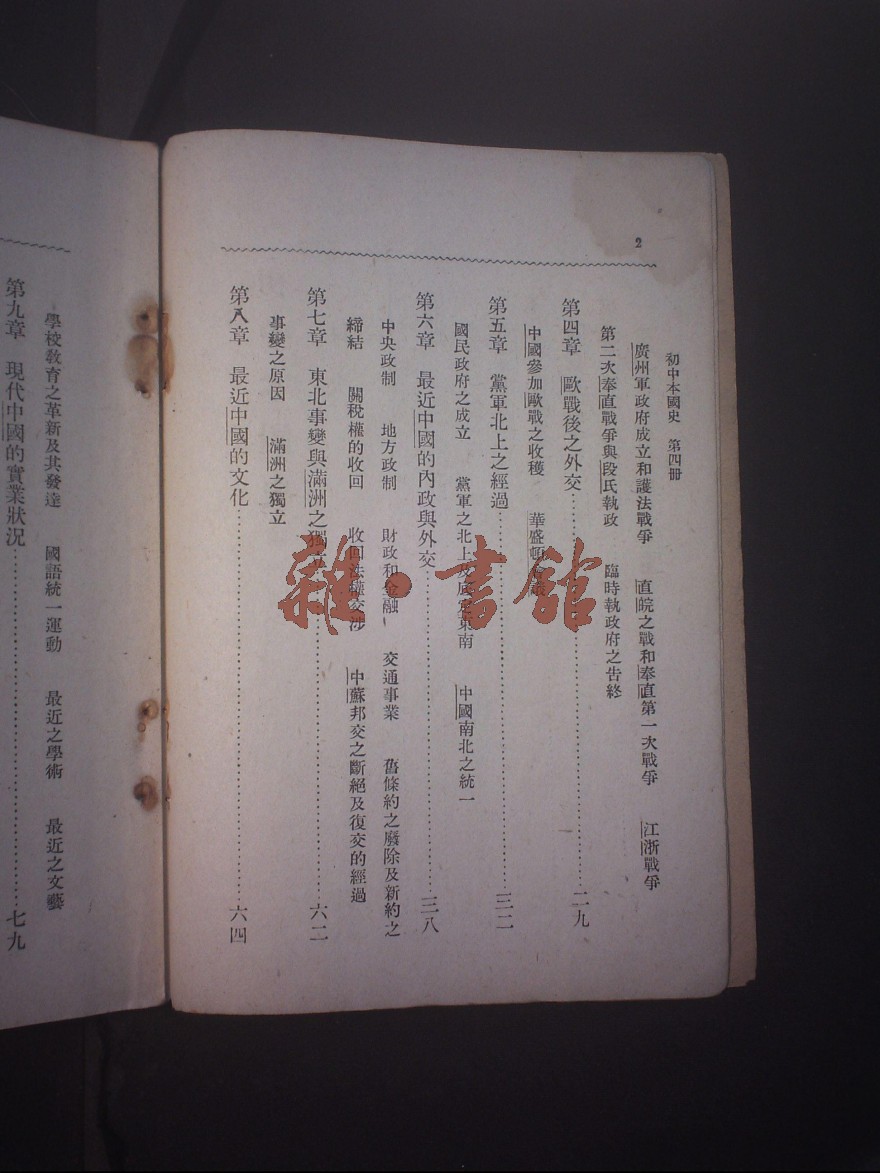 2
初中本國史 第四冊
廣州軍政府成立和護法戰爭 直皖之戰和奉直第一次戰爭 江浙戰爭
第二次奉直戰爭與段氏執政 臨時執政府之告終
第四章 歐戰後之外交……二九
中國參加歐戰之收穫 華盛頓會議
第五章 黨軍北上之經過……三二
國民政府之成立 黨軍之北上及底定東南 中國南北之統一
第六章 最近中國的內政與外交……三八
中央政制 地方政制 財政和金融 交通事業 舊條約之廢除及新約之
締結 關稅權的收回 收回法權交涉 中蘇邦交之斷絕及復交的經過
第七章 東北事變與滿洲之獨立……六二
事變之原因 滿洲之獨立
第八章 最近中國的文化……六四
學校教育之革新及其發達 國語統一運動 最近之學術 最近之文藝
第九章 現代中國的實業狀況……七九
雜·書館